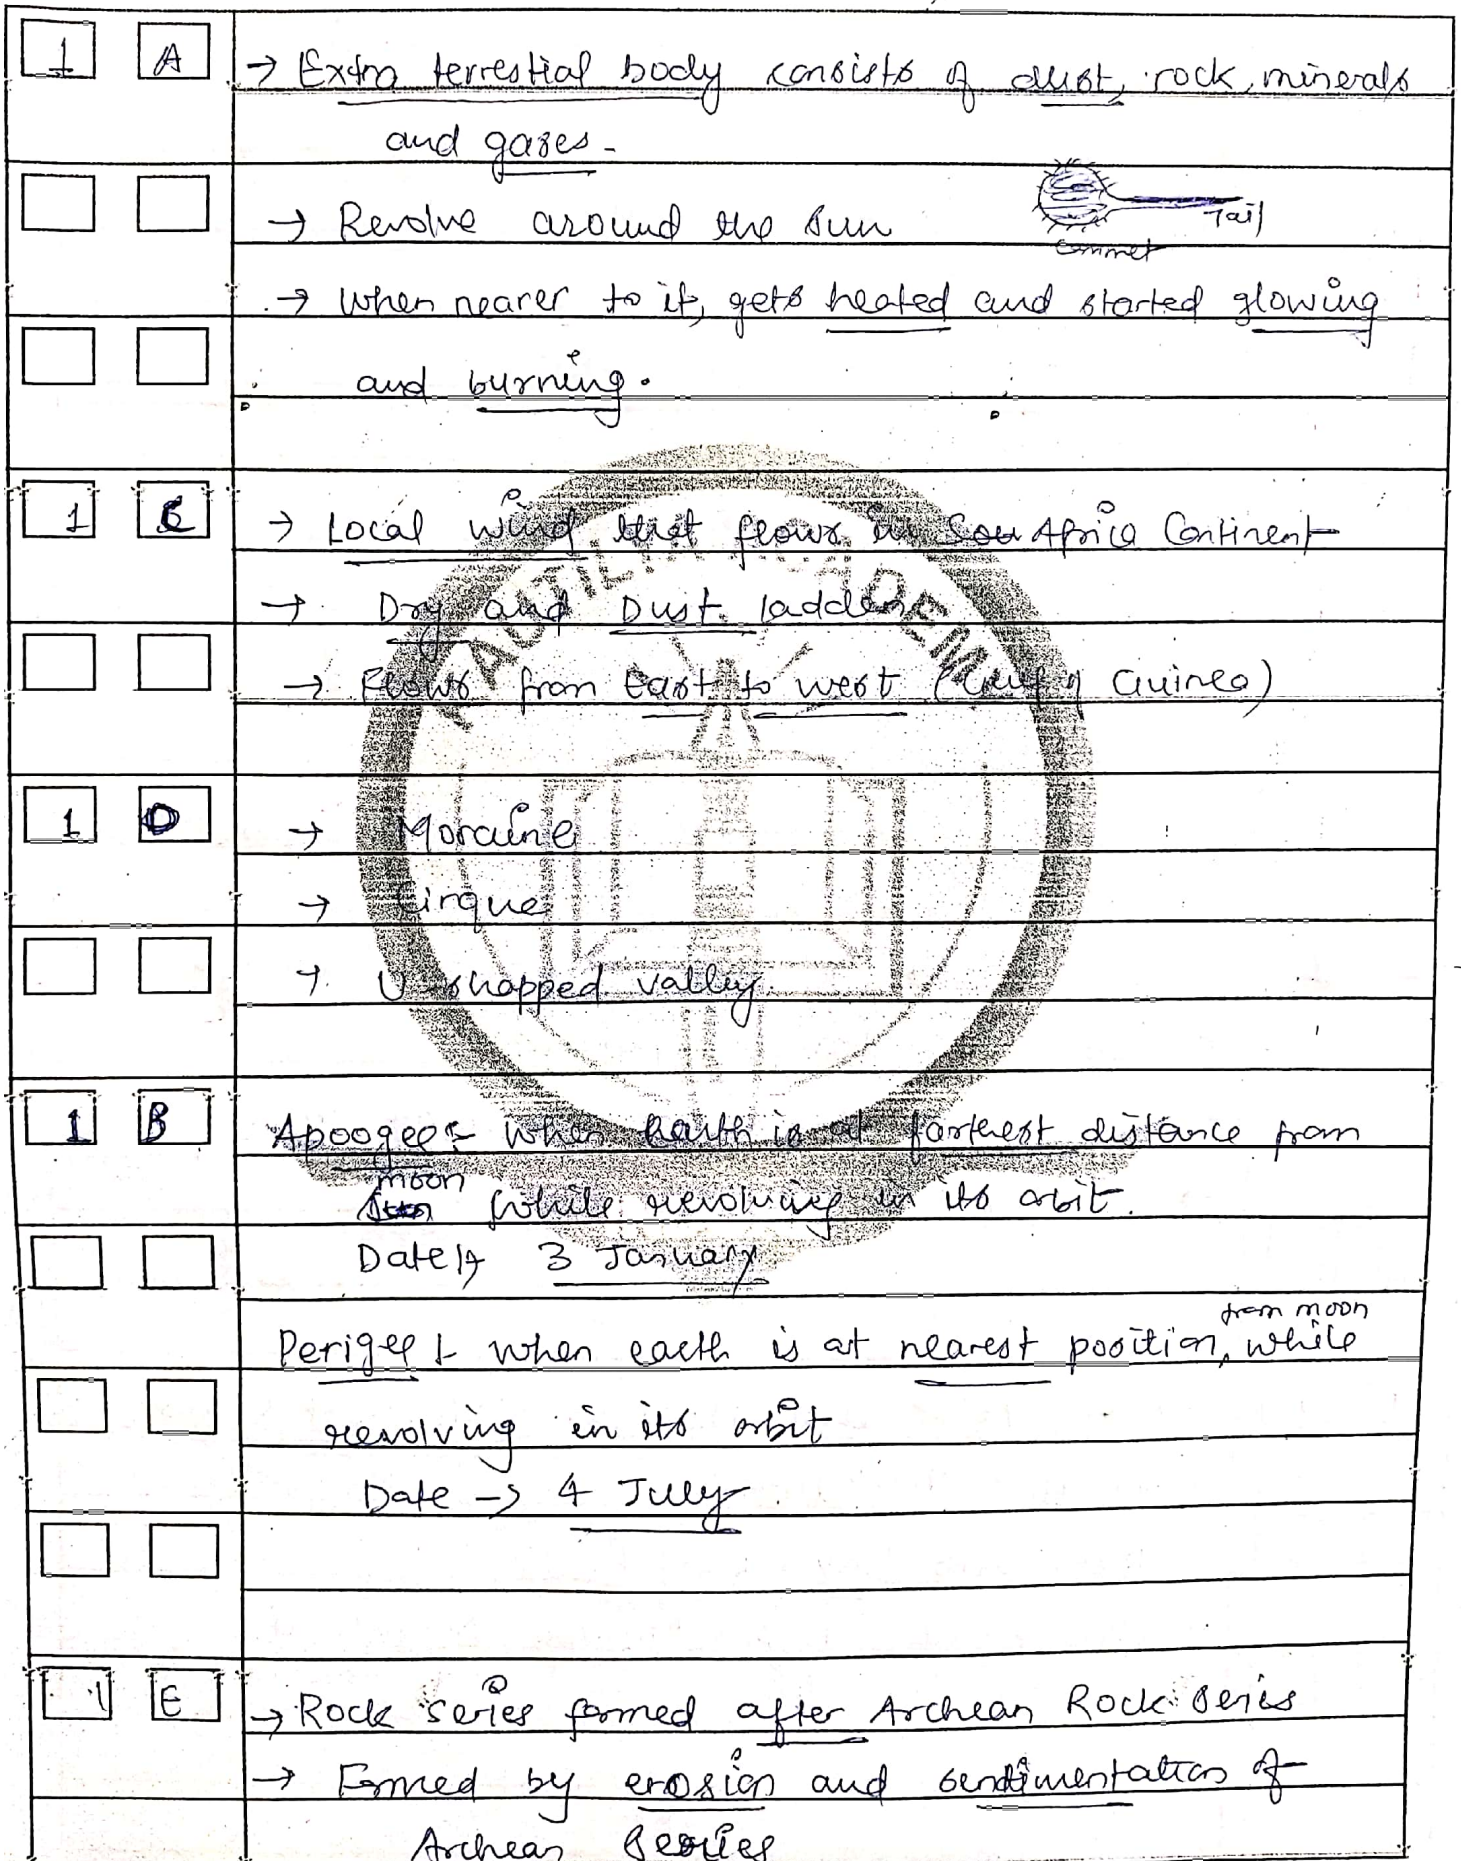 1 A → Extra terrestial body consists of dust, rock, minerals
and gases-
→ Revolve around the sun
Tail
Commet
→ When nearer to it, gets heated and started glowing
and burning.
1 C → Local wind that flows in Africa Continent
→ Dry and Dust ladden
→ Flows from East to west (Gulf of Guinea)
1 D → Moraine
→ Cirque
→ U shapped valley
1 B Apoogee :- When Earth is at fartherest distance from
moon
while revolving in its orbit.
Date → 3 January
from moon
Perigee :- when earth is at nearest position, while
revolving in its orbit
Date → 4 July
1 E → Rock series formed after Archean Rock series
→ Formed by erosion and sendimentation of
Archean Series
KAUTILYA ACADEMY